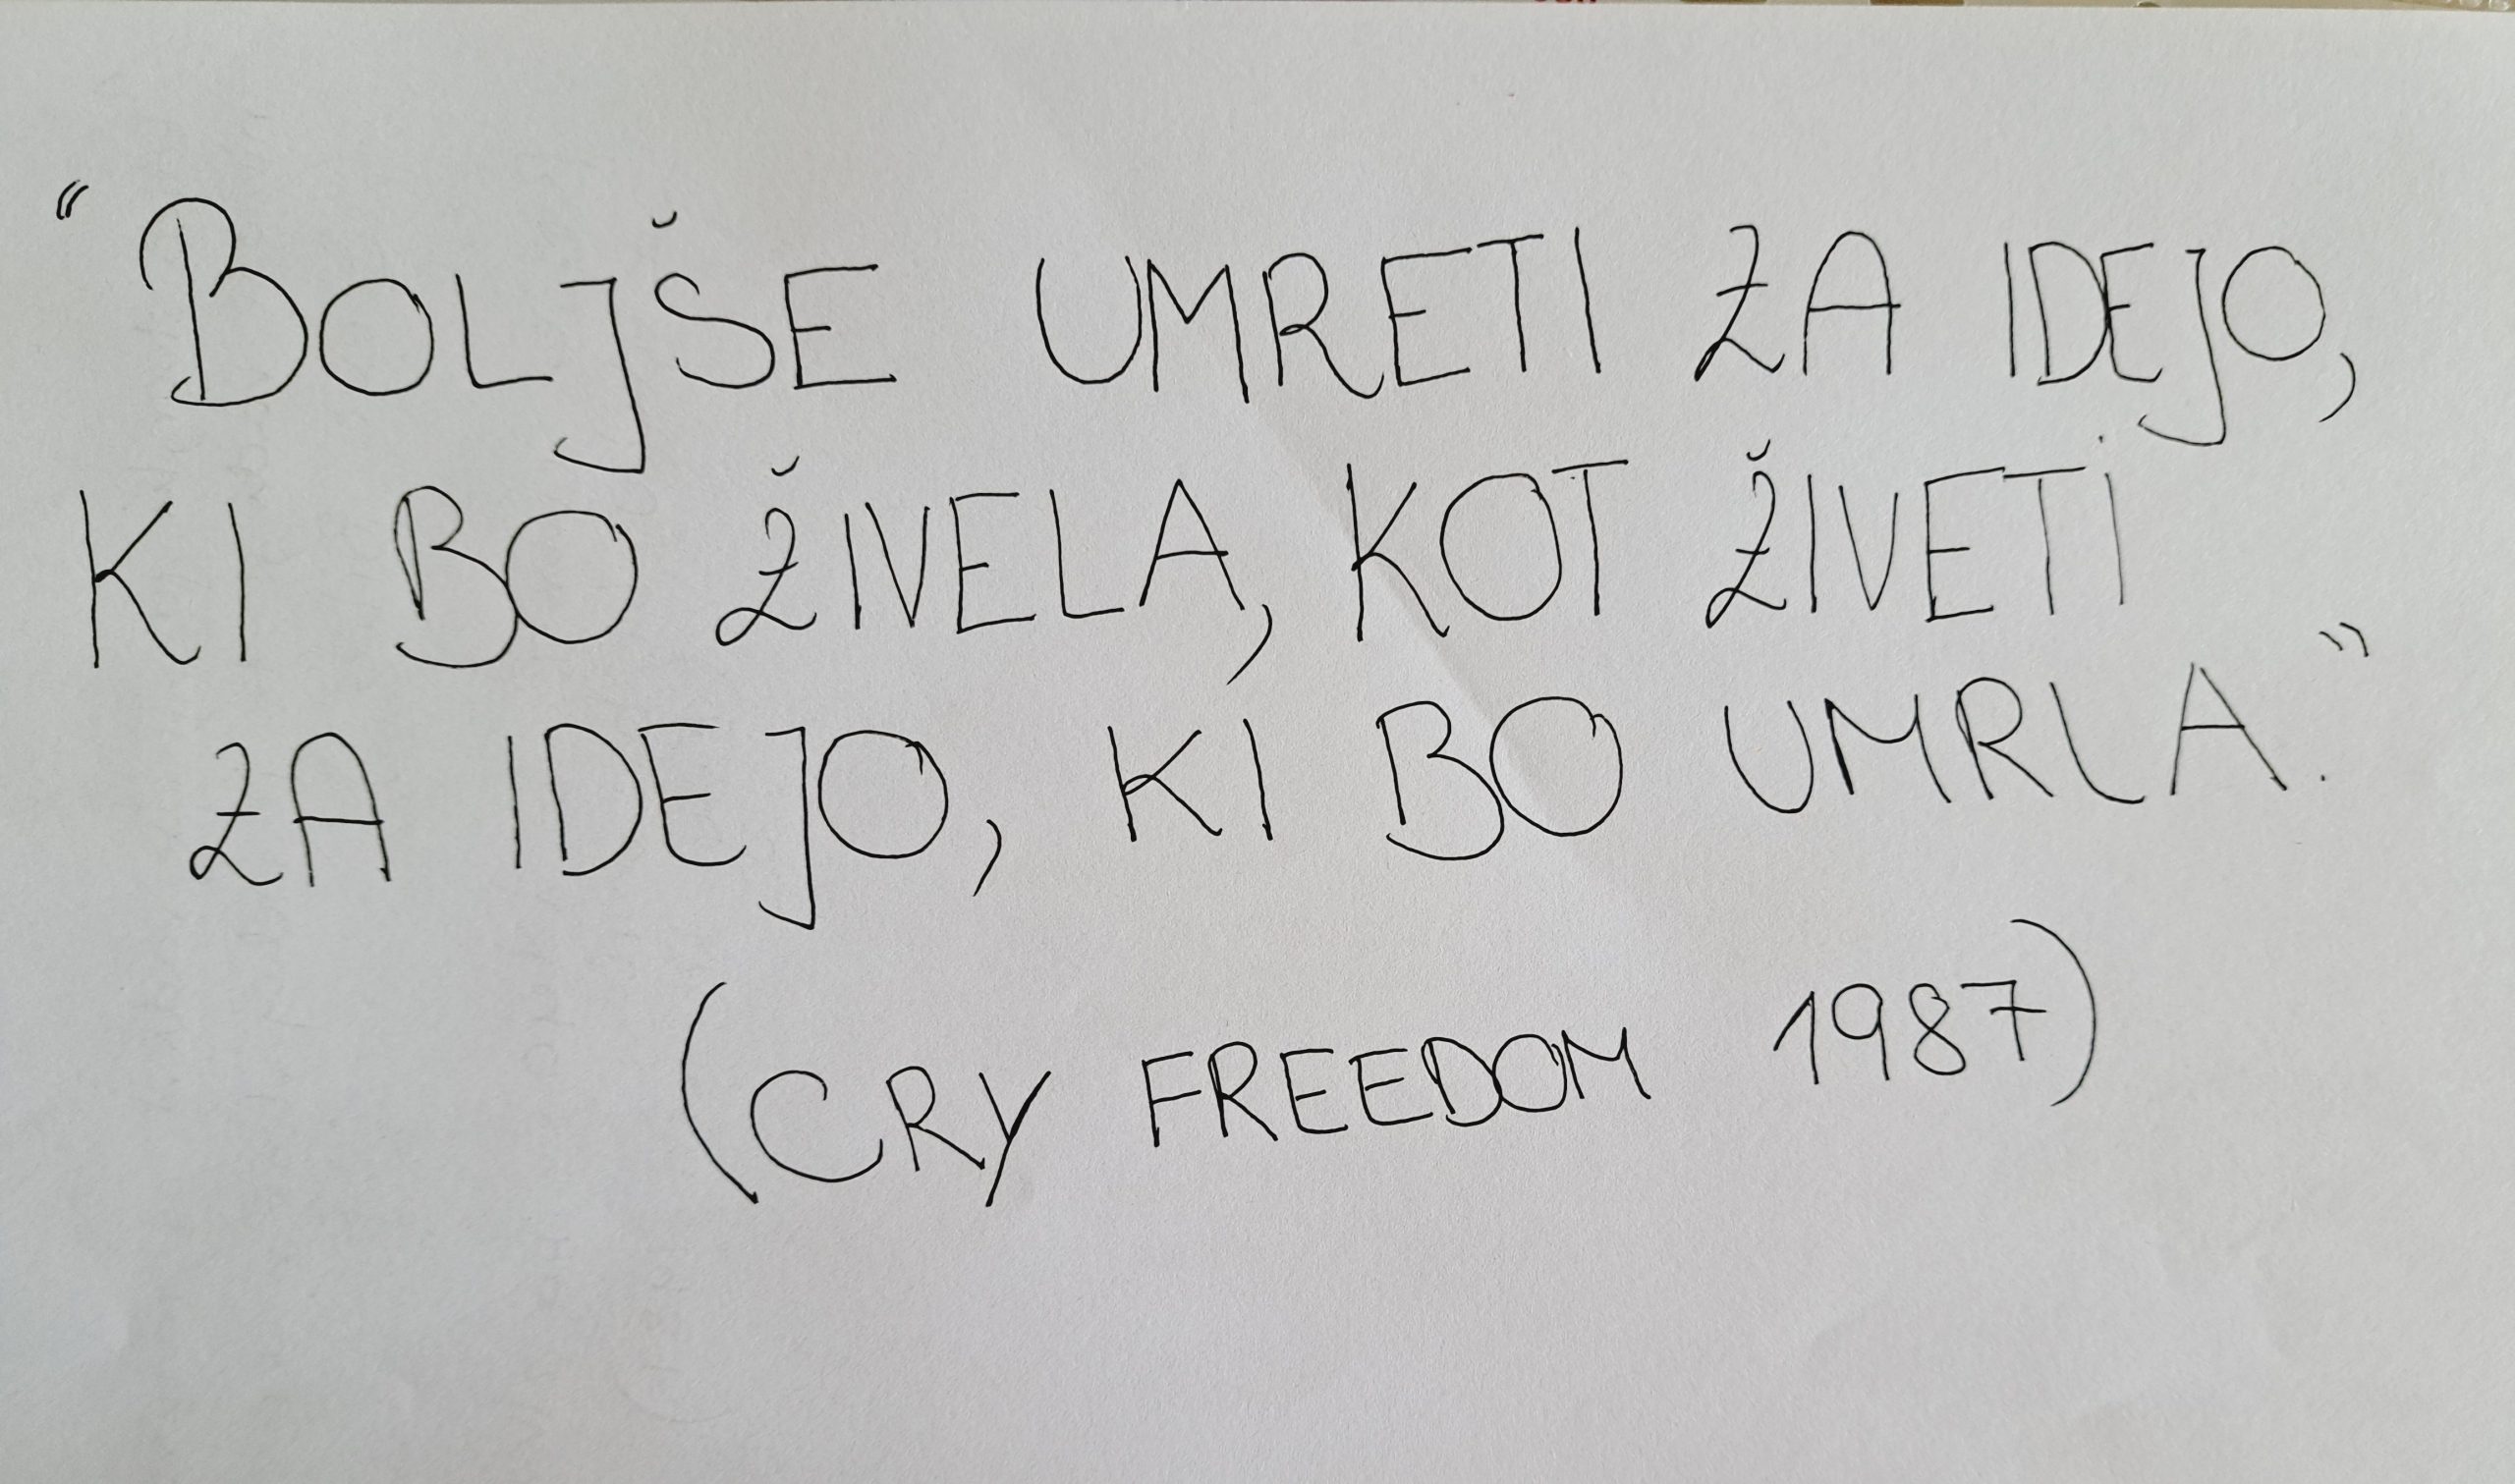 “BOLJŠE UMRETI ZA IDEJO,
KI BO ŽIVELA, KOT ŽIVETI
ZA IDEJO, KI BO UMRLA.”
(CRY FREEDOM 1987)